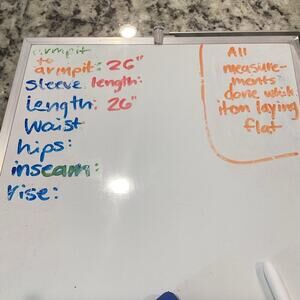 armpit
to
armpit: 26"
sleeve length:
length: 26"
Waist
hips:
inseam:
rise:
All
measure-
ments
done while
item laying
flat